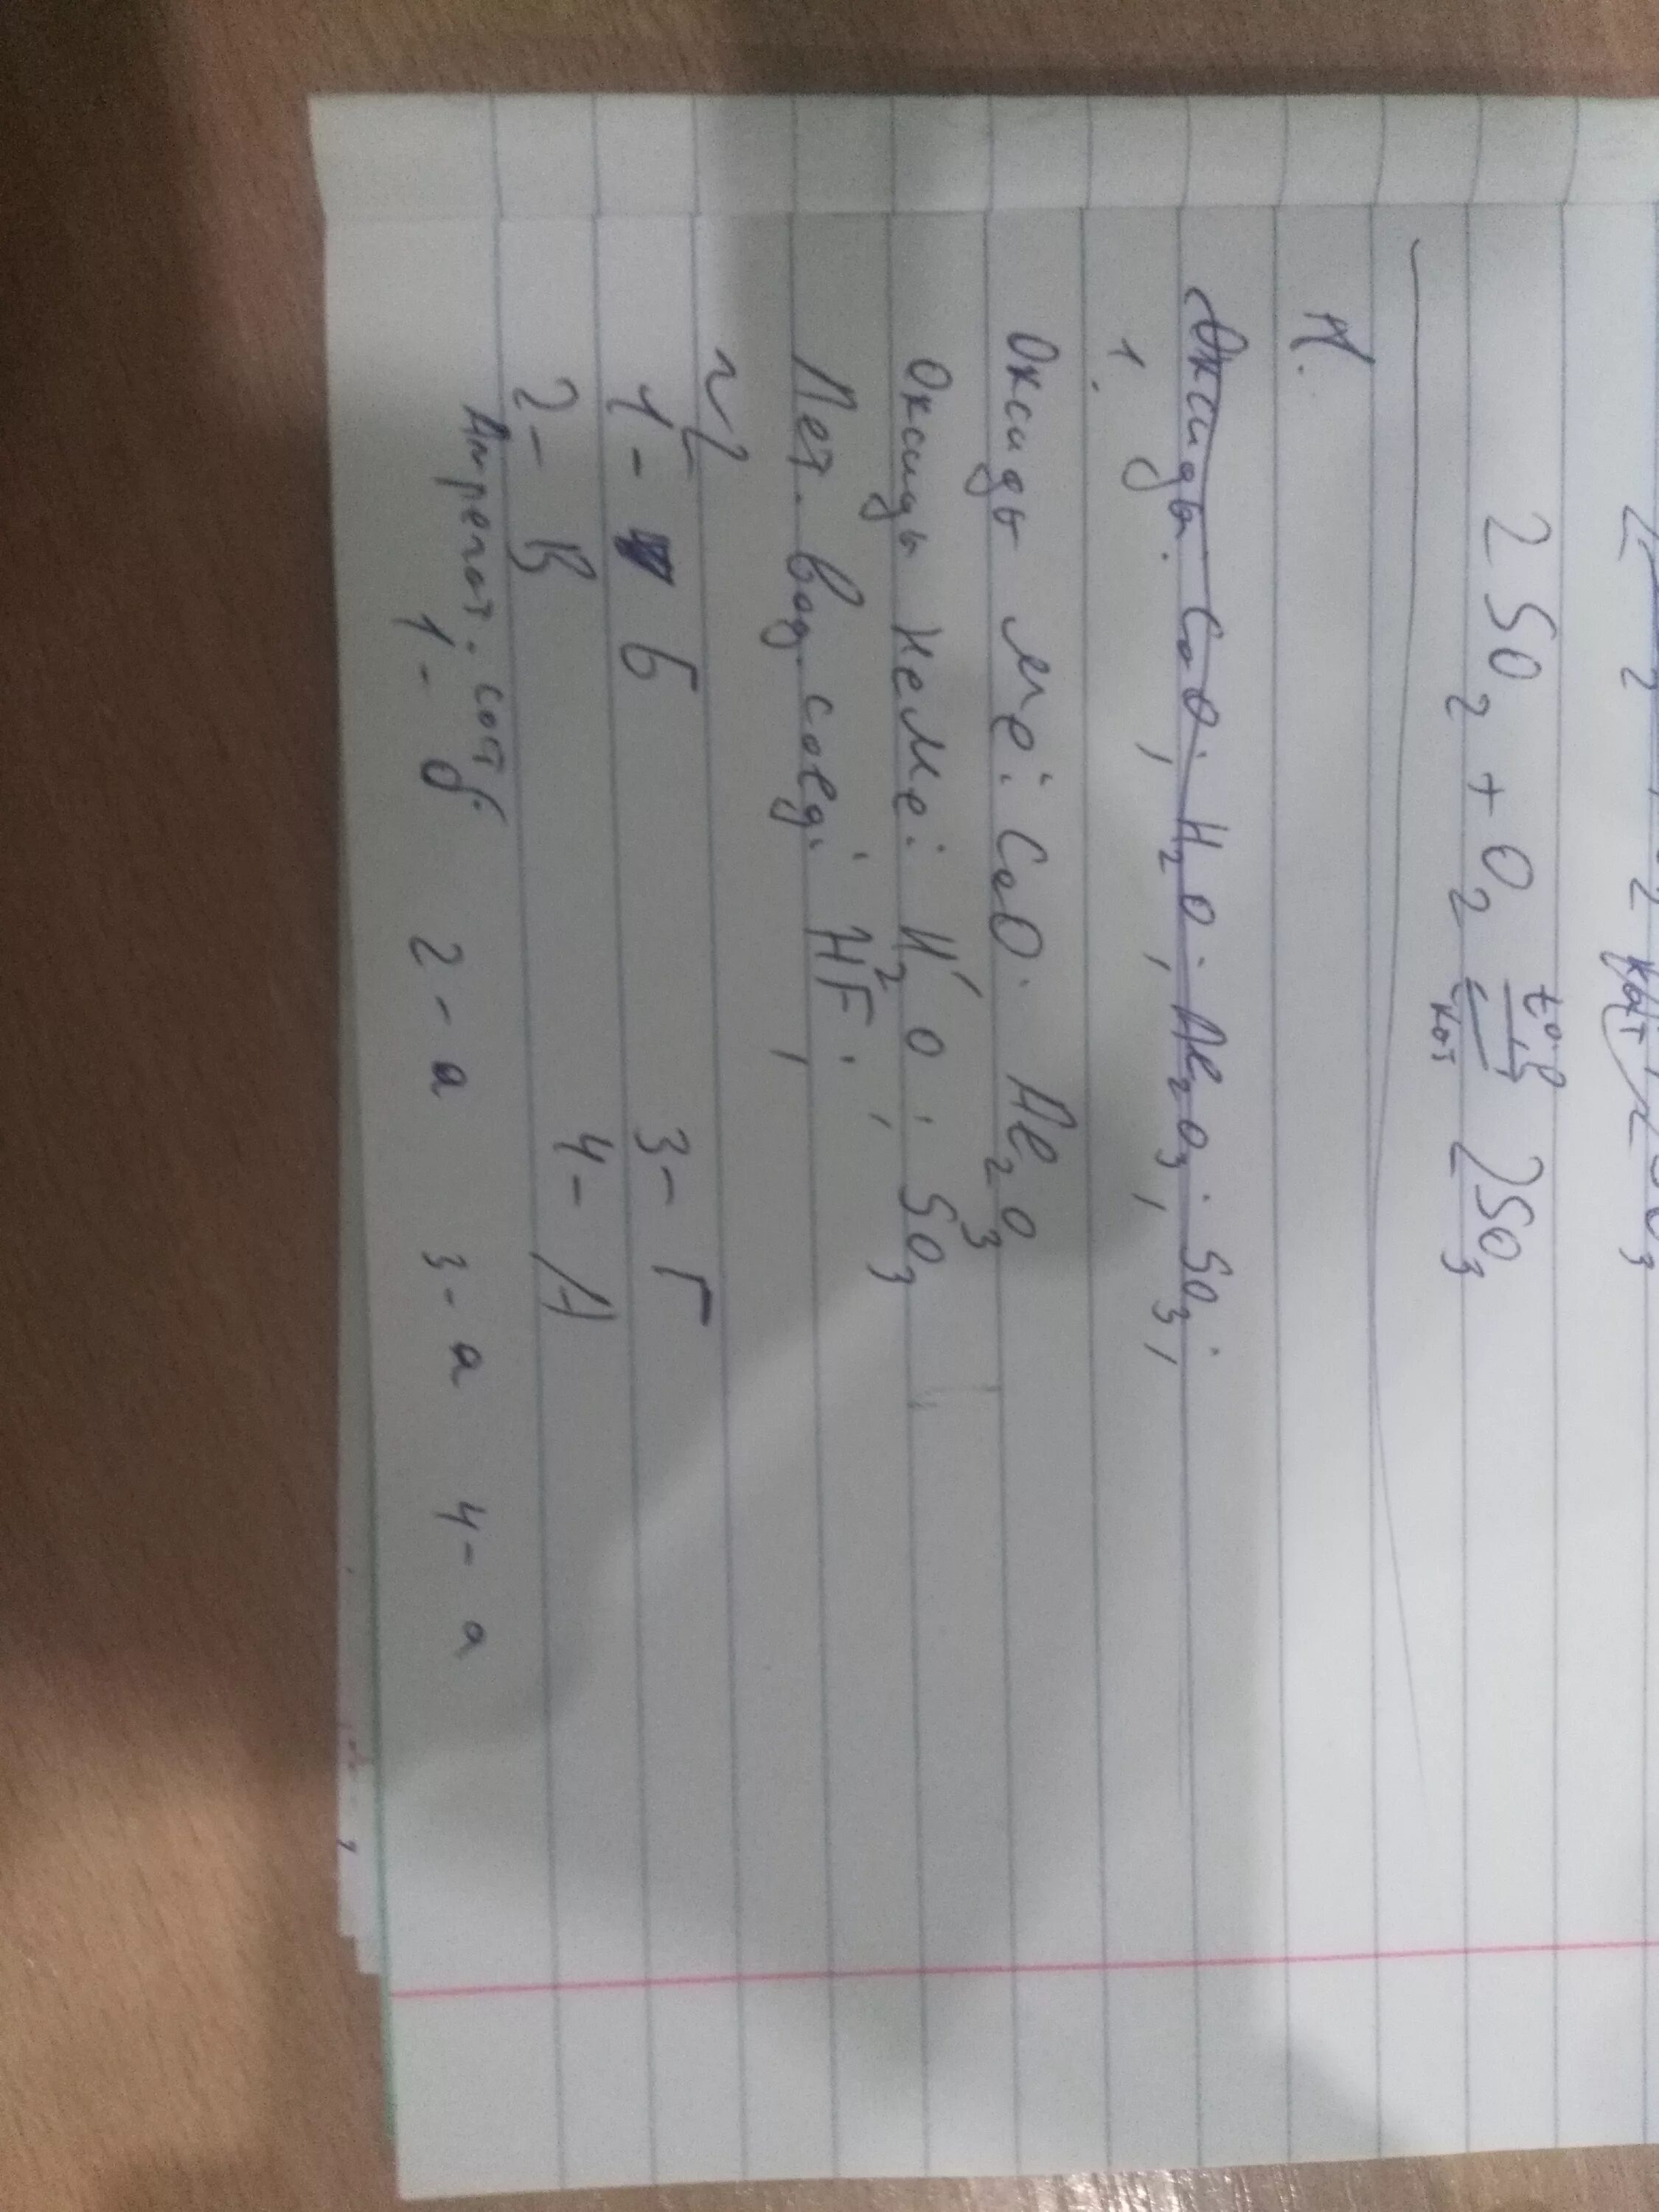 2SO₂ + O₂ ⇄ 2SO₃
t°, p
кат
N.
Оксиды: CaO; H₂O; Al₂O₃; SO₃;
1.
Оксиды Ме: CaO. Al₂O₃
Оксиды НеМе: H₂O; SO₃
Лет. вод. соед: HF;
1 - Б 3 - Г
2 - В 4 - А
Агрегат. сот
1 - б 2 - а 3 - а 4 - а